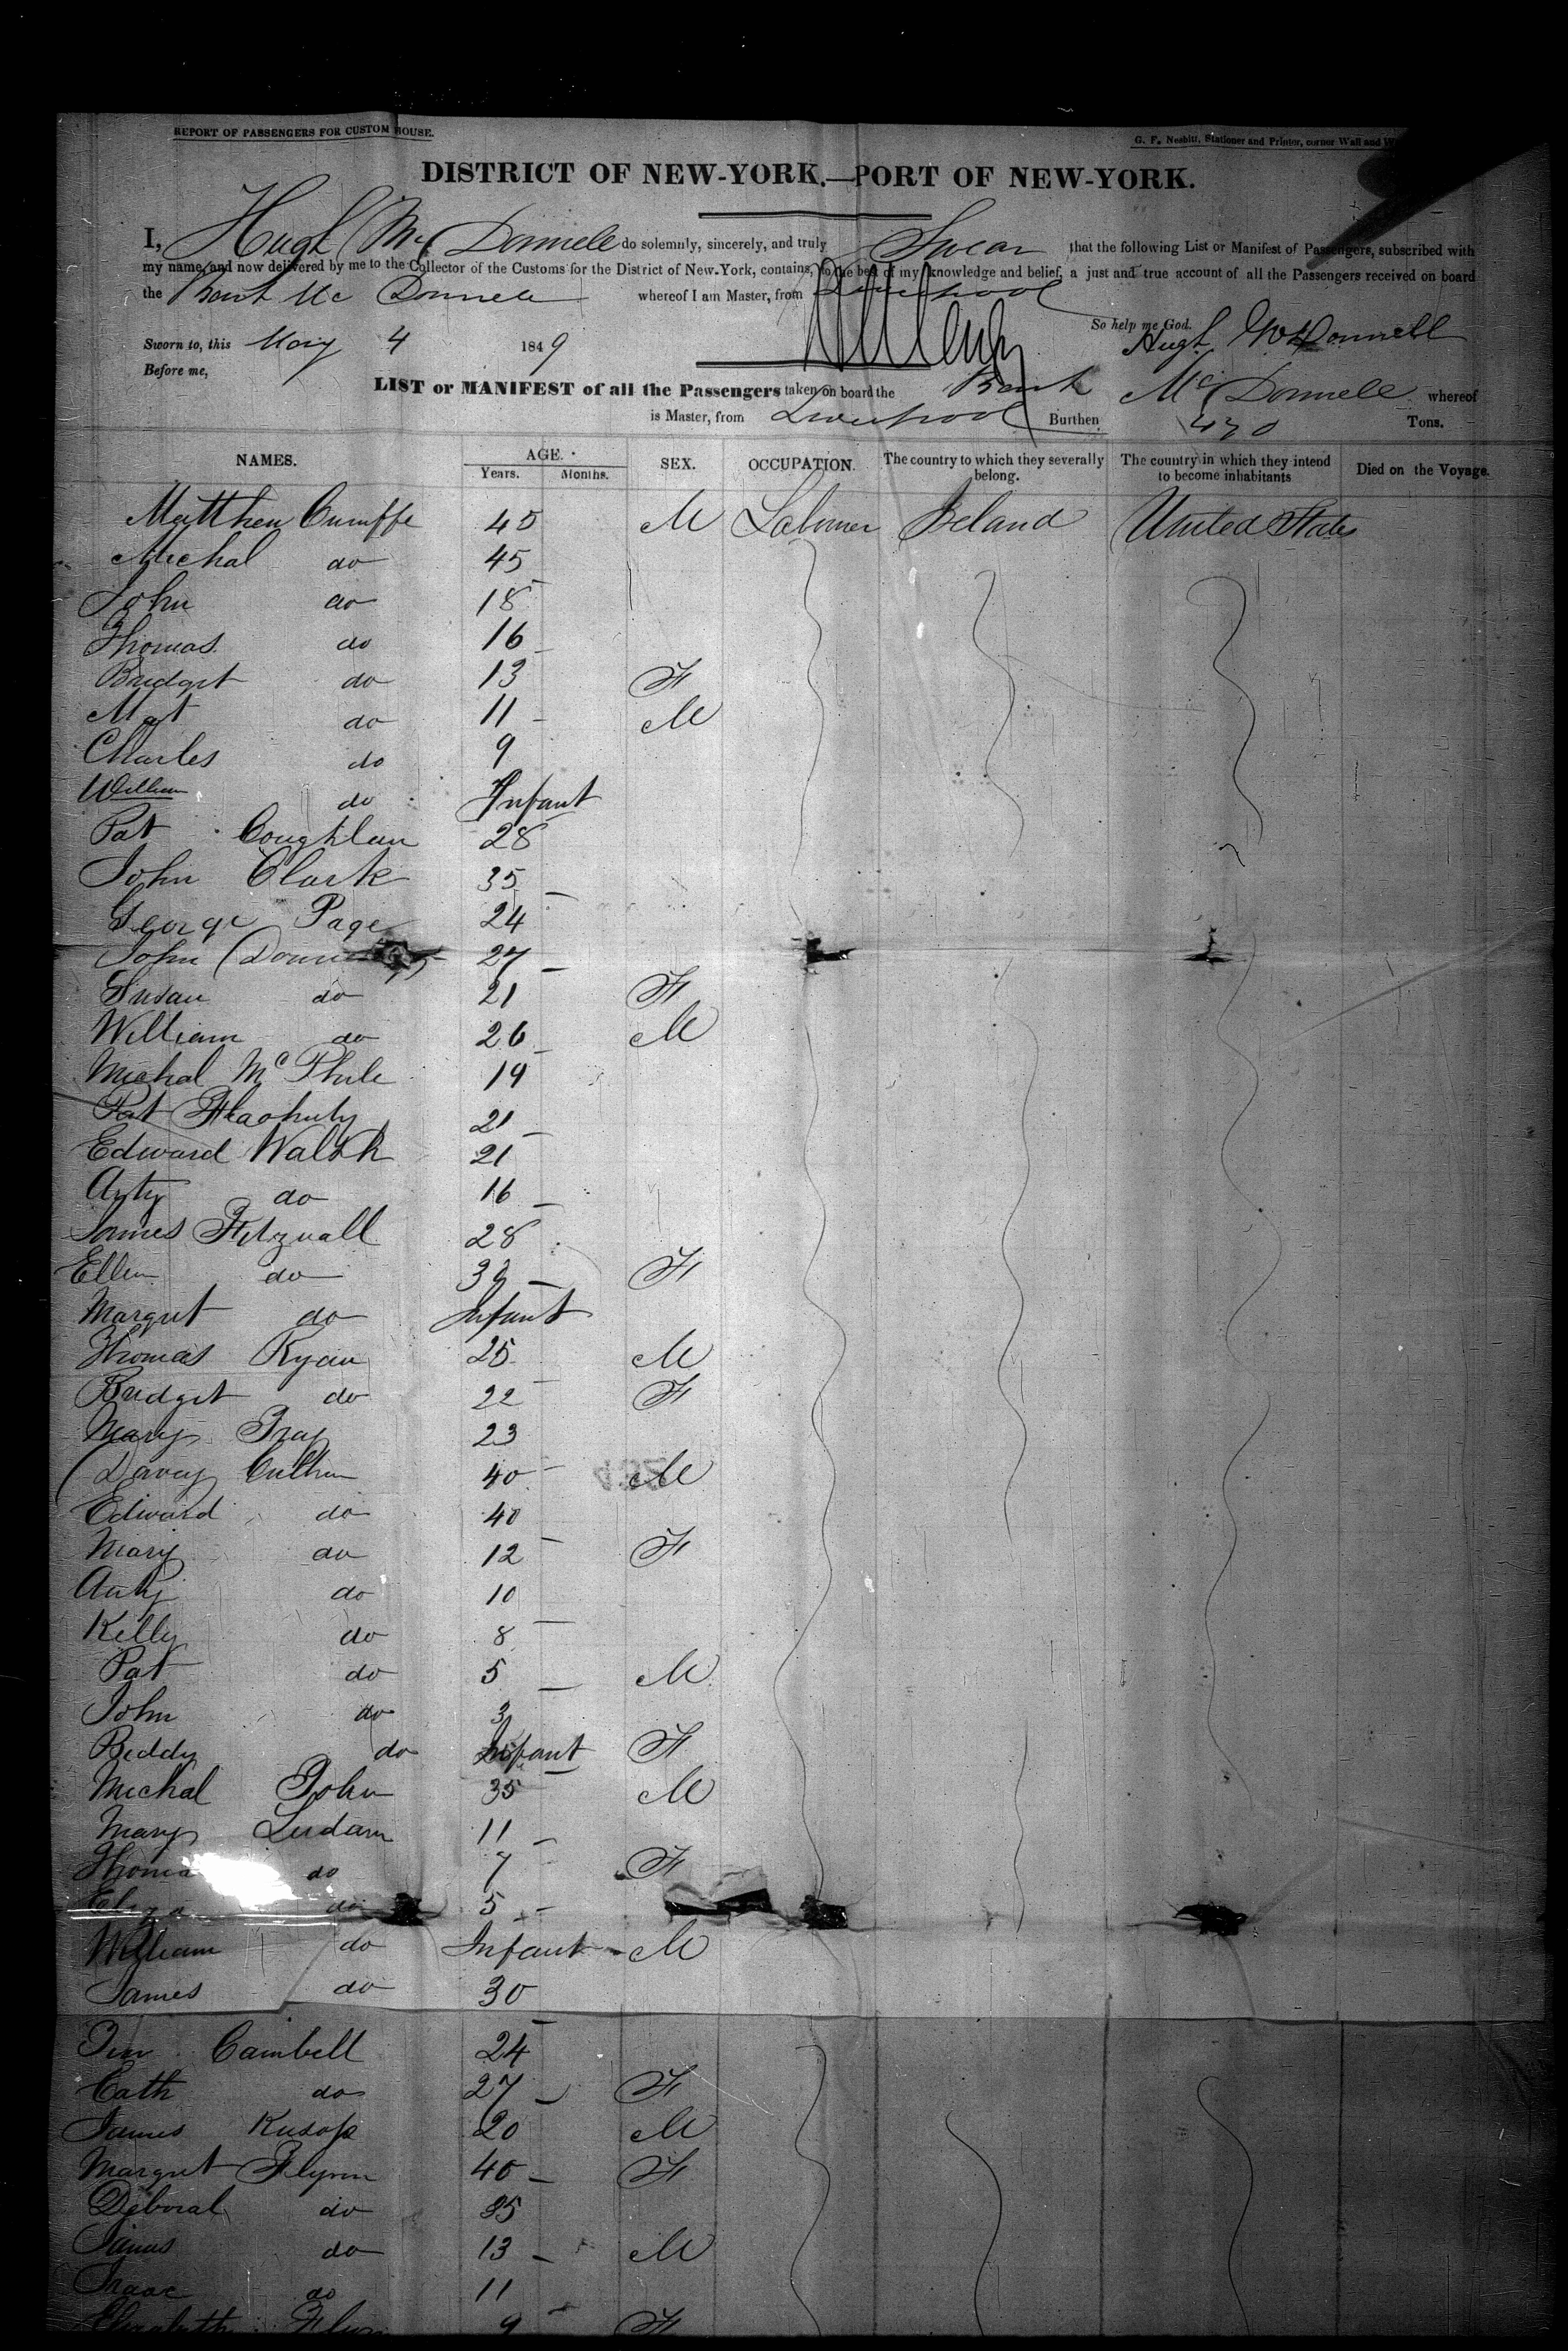 REPORT OF PASSENGERS FOR CUSTOM HOUSE.
G. F. Nesbitt, Stationer and Printer, corner Wall and
DISTRICT OF NEW-YORK.—PORT OF NEW-YORK.
I, Hugh McDonnele do solemnly, sincerely, and truly Swear that the following List or Manifest of Passengers, subscribed with
my name, and now delivered by me to the Collector of the Customs for the District of New-York, contains, to the best of my knowledge and belief, a just and true account of all the Passengers received on board
the McDonnele whereof I am Master, from Liverpool
So help me God.
Sworn to, this May 4 1849 Hugh McDonnell
Before me,
LIST or MANIFEST of all the Passengers taken on board the McDonnele whereof
is Master, from Liverpool Burthen 470 Tons.
NAMES. AGE. Years. Months. SEX. OCCUPATION. The country to which they severally belong. The country in which they intend to become inhabitants Died on the Voyage.
Matthew 45 M Labourer Ireland United States
Michal do 45
John do 18
Thomas do 16
Bridget do 13 F
Mat do 11 M
Charles do 9
William do Infant
Pat Coughlan 28
John Clark 35
George Page 24
John 27
Susan do 21 F
William do 26 M
Michal 19
Pat 21
Edward Walsh 21
do 16
James 28
Ellen do F
Margret do Infant
Thomas Ryan 25 M
Bridget do 22 F
Mary 23
40 M
Edward do 40
Mary do 12 F
do 10
Kelly do 8
Pat do 5 M
John do 3
Biddy do Infant F
Michal John 35 M
Mary 11
Thoma do 7 F
Eliza do 5
William do Infant M
James do 30
Cambell 24
Cath do 27 F
James 20 M
Margret Flynn 40 F
Deborah do 35
James do 13 M
Isaac do 11
Elizabeth 9 F